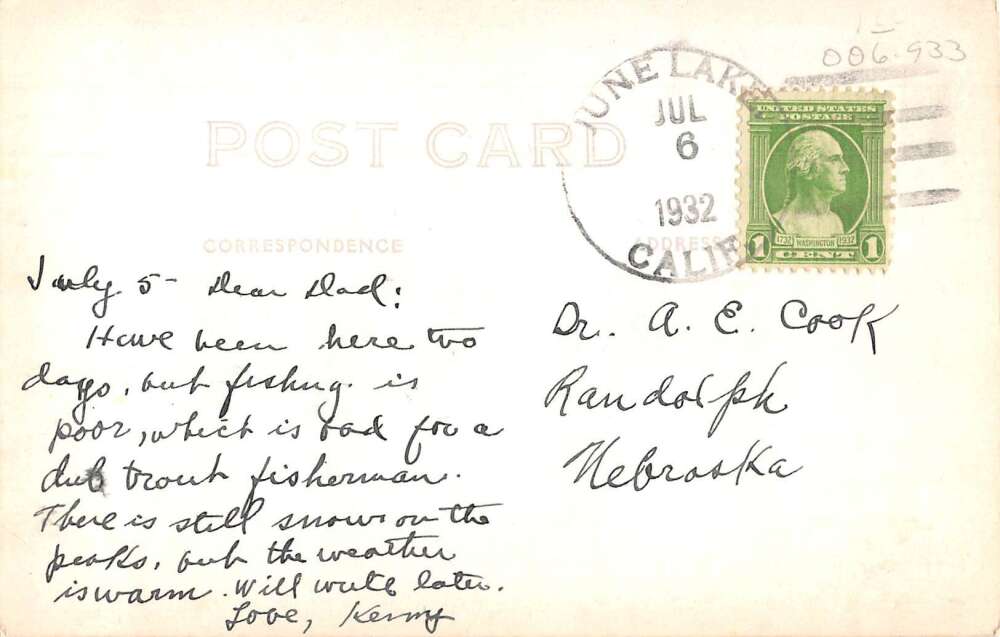 15-
006.933
JUNE LAKE
JUL
6
1932
CALIF
UNITED STATES
POSTAGE
1732 WASHINGTON 1932
1 CENT 1
POST CARD
CORRESPONDENCE
ADDRESS
July 5- Dear Dad:
Have been here two
days, but fishing is
poor, which is bad for a
dub trout fisherman.
There is still snow on the
peaks, but the weather
is warm. Will write later.
Love, Kenny
Dr. A. E. Cook
Randolph
Nebraska